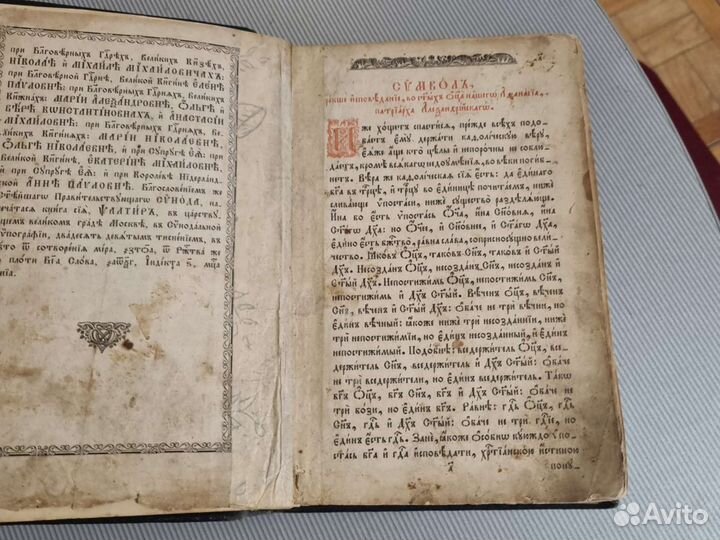 при Благовѣрныхъ Гдⷭ҇рѣхъ, Великихъ Кнѧзѣхъ
НІКОЛАЕ и МІХАИЛѢ МІХАЙЛОВИЧАХЪ:
при Благовѣрной Гдⷭ҇рнѣ, Великой Кнѧгинѣ ЕЛЕНѢ
ПАУЛОВНѢ: при Благовѣрныхъ Гдⷭ҇рнѧхъ, Великихъ
Кнѧжнахъ: МАРІИ АЛЕѮАНДРОВНѢ, ОЛЬГѢ и
ВѢРѢ КОНСТАНТІНОВНАХЪ, и АНАСТАСІИ
МІХАЙЛОВНѢ: при Благовѣрныхъ Гдⷭ҇рнѧхъ, Ве-
ликихъ Кнѧгинѧхъ: МАРІИ НІКОЛАЕВНѢ,
ОЛЬГѢ НІКОЛАЕВНѢ, и при Супругѣ Еѧ: при
Великой Кнѧгинѣ, ЕКАТЕРІНѢ МІХАЙЛОВНѢ,
и при Супругѣ Еѧ: и при Королевѣ Нідерланд-
ской АННѢ ПАУЛОВНѢ. Благословенїемъ же
Свѧтѣйшагѡ Правительствующагѡ СѴНОДА, на-
печатасѧ книга сїѧ, ѰАЛТИРЬ, въ царству-
ющемъ великомъ градѣ Москвѣ, въ Сѵнодальной
Тѵпографїи, двадесѧть девѧтымъ тисненїемъ, въ
лѣто ѿ сотворенїѧ мїра, ѿ Рⷭ҇тва же
по плоти Бг҃а Слова, Індікта
СѴМВОЛЪ,
сирѣчь исповѣданїе, во ст҃ыхъ ѻц҃а нашегѡ Аѳанасїа,
патрїарха Алеѯандрїйскагѡ.
Иже хощетъ спастисѧ, прежде всѣхъ подо-
баетъ ему держати каѳолїческую вѣру,
еѧже аще кто цѣлы и непорочны не соблю-
даетъ, кромѣ всѧкагѡ недоумѣнїѧ, во вѣки погиб-
нетъ. Вѣра же каѳолїческаѧ сїѧ есть: да единагѡ
бг҃а въ трⷪ҇цѣ, и трⷪ҇цу во единицѣ почитаемъ, ниже
сливающе ѵпостаси, ниже существо раздѣлѧюще.
Ина бо есть ѵпостась Ѻч҃а, ина Сн҃овнѧ, ина
Ст҃агѡ Дх҃а: но Ѻч҃ее, и Сн҃овнее, и Ст҃агѡ Дх҃а,
едино есть бжⷭ҇тво, равна слава, соприсносущно вели-
чество. Ꙗковъ Ѻц҃ъ, таковъ Сн҃ъ, таковъ и Ст҃ый
Дх҃ъ. Несозданъ Ѻц҃ъ, несозданъ Сн҃ъ, несозданъ и
Ст҃ый Дх҃ъ. Непостижимъ Ѻц҃ъ, непостижимъ Сн҃ъ,
непостижимъ и Дх҃ъ Ст҃ый. Вѣченъ Ѻц҃ъ, вѣченъ
Сн҃ъ, вѣченъ и Ст҃ый Дх҃ъ: обаче не три вѣчни, но
единъ вѣчный: ꙗкоже ниже три несозданнїи, ниже
три непостижимїи, но единъ несозданный, и единъ
непостижимый. Подобнѣ: вседержитель Ѻц҃ъ, все-
держитель Сн҃ъ, вседержитель и Дх҃ъ Ст҃ый: обаче
не три вседержители, но единъ вседержитель. Такѡ
бг҃ъ Ѻц҃ъ, бг҃ъ Сн҃ъ, бг҃ъ и Дх҃ъ Ст҃ый: обаче не
три бози, но единъ бг҃ъ. Равнѣ: гдⷭ҇ь Ѻц҃ъ, гдⷭ҇ь
Сн҃ъ, гдⷭ҇ь и Дх҃ъ Ст҃ый: обаче не три гдⷭ҇їе, но
единъ есть гдⷭ҇ь. Зане, ꙗкоже особнѡ куюждо ѵпо-
стась бг҃а и гдⷭ҇а исповѣдати, хрⷭ҇тїанскою истиною
а
пону-
Avito